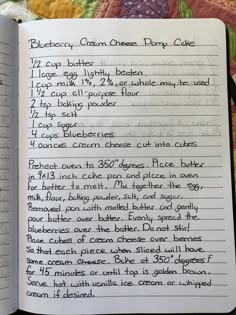 Blueberry Cream Cheese Dump Cake
1/2 cup butter
1 large egg lightly beaten
1 cup milk 1%, 2% or whole may be used
1 cup all-purpose flour
2 tsp baking powder
1/2 tsp salt
1 cup sugar
4 cups blueberries
4 ounces cream cheese cut into cubes
Preheat oven to 350° degrees. Place butter
in 9x13 inch cake pan and place in oven
for butter to melt. Mix together the egg,
milk, flour, baking powder, salt, and sugar.
Removed pan with melted butter and gently
pour batter over butter. Evenly spread the
blueberries over the batter. Do not stir!
Place cubes of cream cheese over berries
so that each piece when sliced will have
some cream cheese. Bake at 350° degrees F
for 45 minutes or until top is golden brown.
Serve hot with vanilla ice cream or whipped
cream if desired.